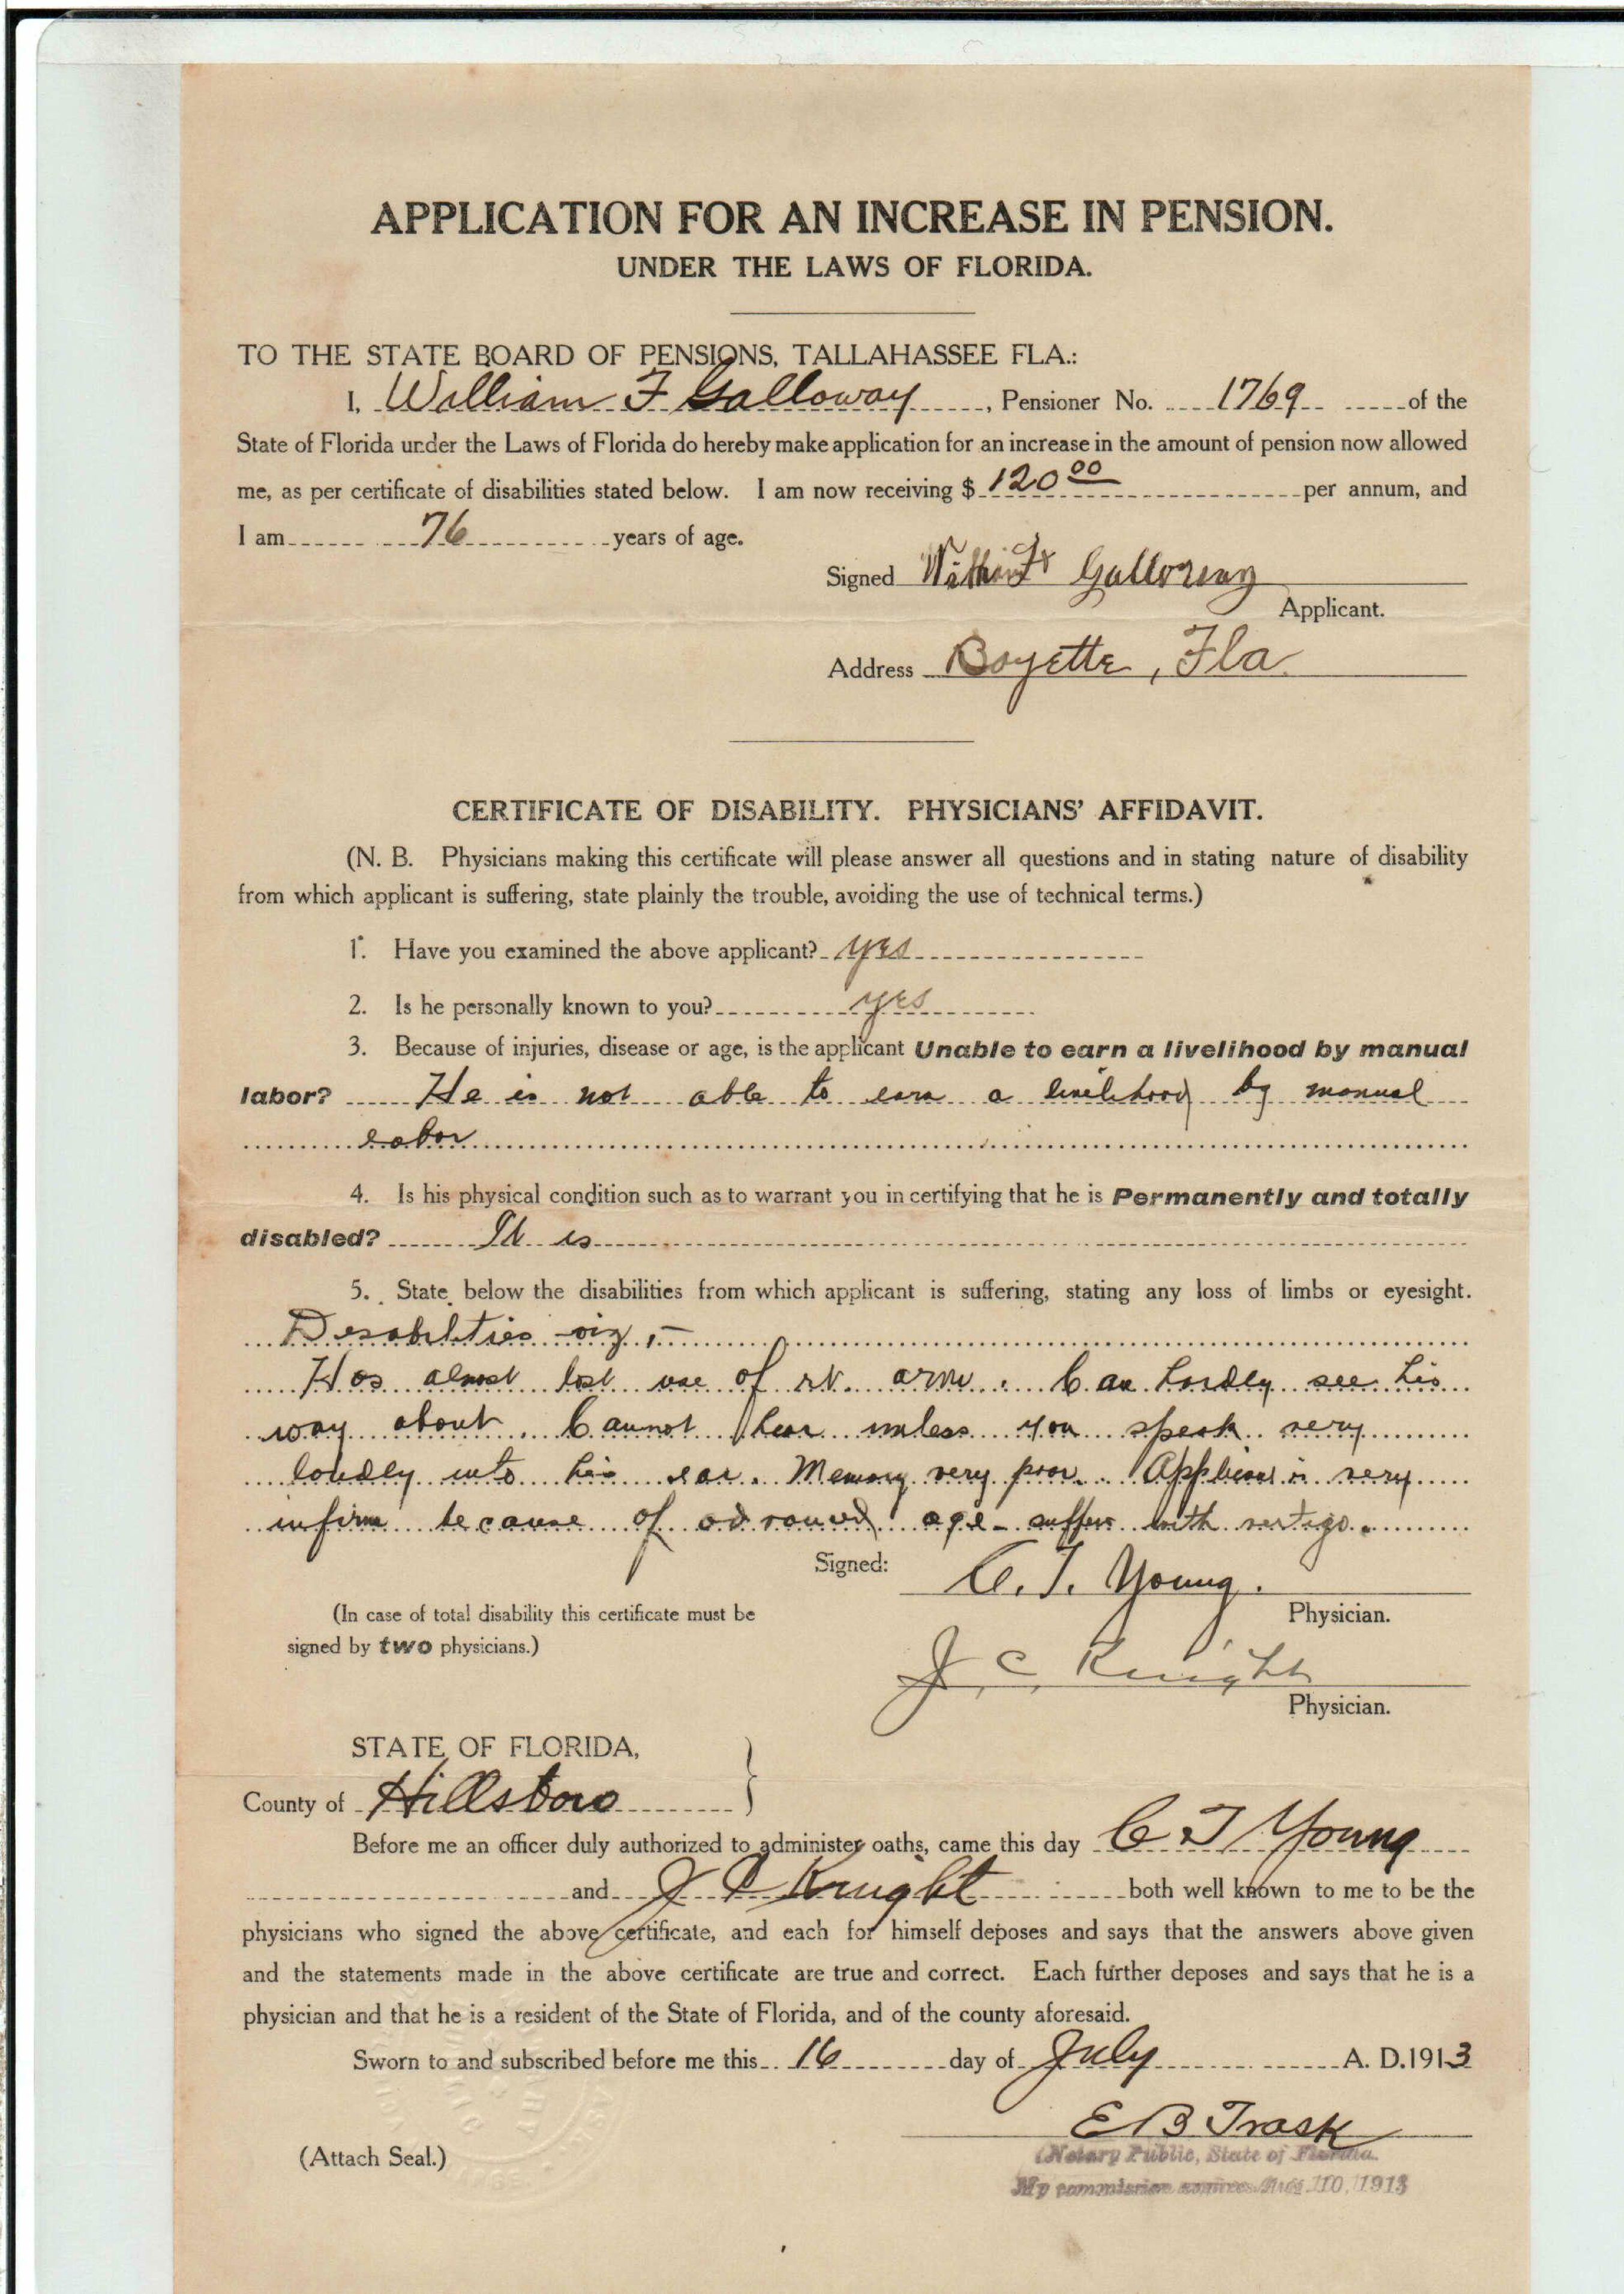 APPLICATION FOR AN INCREASE IN PENSION.
UNDER THE LAWS OF FLORIDA.
TO THE STATE BOARD OF PENSIONS, TALLAHASSEE FLA.:
I, William F Galloway, Pensioner No. 1769 of the
State of Florida under the Laws of Florida do hereby make application for an increase in the amount of pension now allowed
me, as per certificate of disabilities stated below. I am now receiving $ 120 00 per annum, and
I am 76 years of age.
Signed Galloway
Applicant.
Address Boyette, Fla
CERTIFICATE OF DISABILITY. PHYSICIANS' AFFIDAVIT.
(N. B. Physicians making this certificate will please answer all questions and in stating nature of disability
from which applicant is suffering, state plainly the trouble, avoiding the use of technical terms.)
1. Have you examined the above applicant? yes
2. Is he personally known to you? yes
3. Because of injuries, disease or age, is the applicant Unable to earn a livelihood by manual
labor? He is not able to earn a livelihood by manual
labor
4. Is his physical condition such as to warrant you in certifying that he is Permanently and totally
disabled? It is
5. State below the disabilities from which applicant is suffering, stating any loss of limbs or eyesight.
Desabilities viz,-
Has almost lost use of rt. arm. Can hardly see his
way about. Cannot hear unless you speak very
loudly into his ear. Memory very poor. Applicant is very
infirm because of advanced age - suffers with vertigo.
Signed: C. T. Young.
Physician.
(In case of total disability this certificate must be
signed by two physicians.)
J. C. Knight
Physician.
STATE OF FLORIDA,
County of Hillsboro
Before me an officer duly authorized to administer oaths, came this day C T Young
and J C Knight both well known to me to be the
physicians who signed the above certificate, and each for himself deposes and says that the answers above given
and the statements made in the above certificate are true and correct. Each further deposes and says that he is a
physician and that he is a resident of the State of Florida, and of the county aforesaid.
Sworn to and subscribed before me this 16 day of July A. D. 1913
E B Trask
(Attach Seal.)
Notary Public, State of Florida.
My commission expires Aug 10, 1913